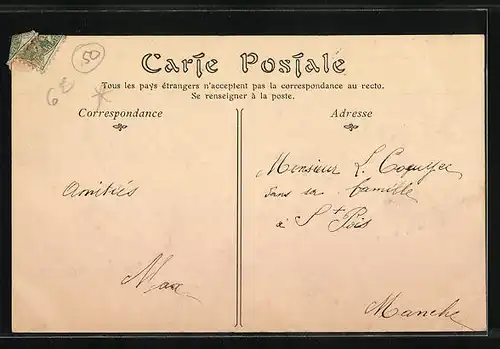 50
6€
Carte Postale
Tous les pays étrangers n'acceptent pas la correspondance au recto.
Se renseigner à la poste.
Correspondance
Amitiés
Max
Adresse
Monsieur L.
dans sa famille
à St Pois
Manche